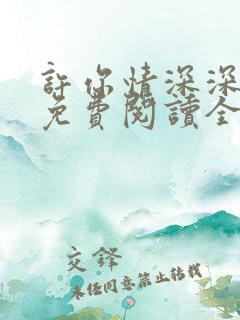 許你情深深
免費閱讀全
交鋒
未經同意禁止轉載